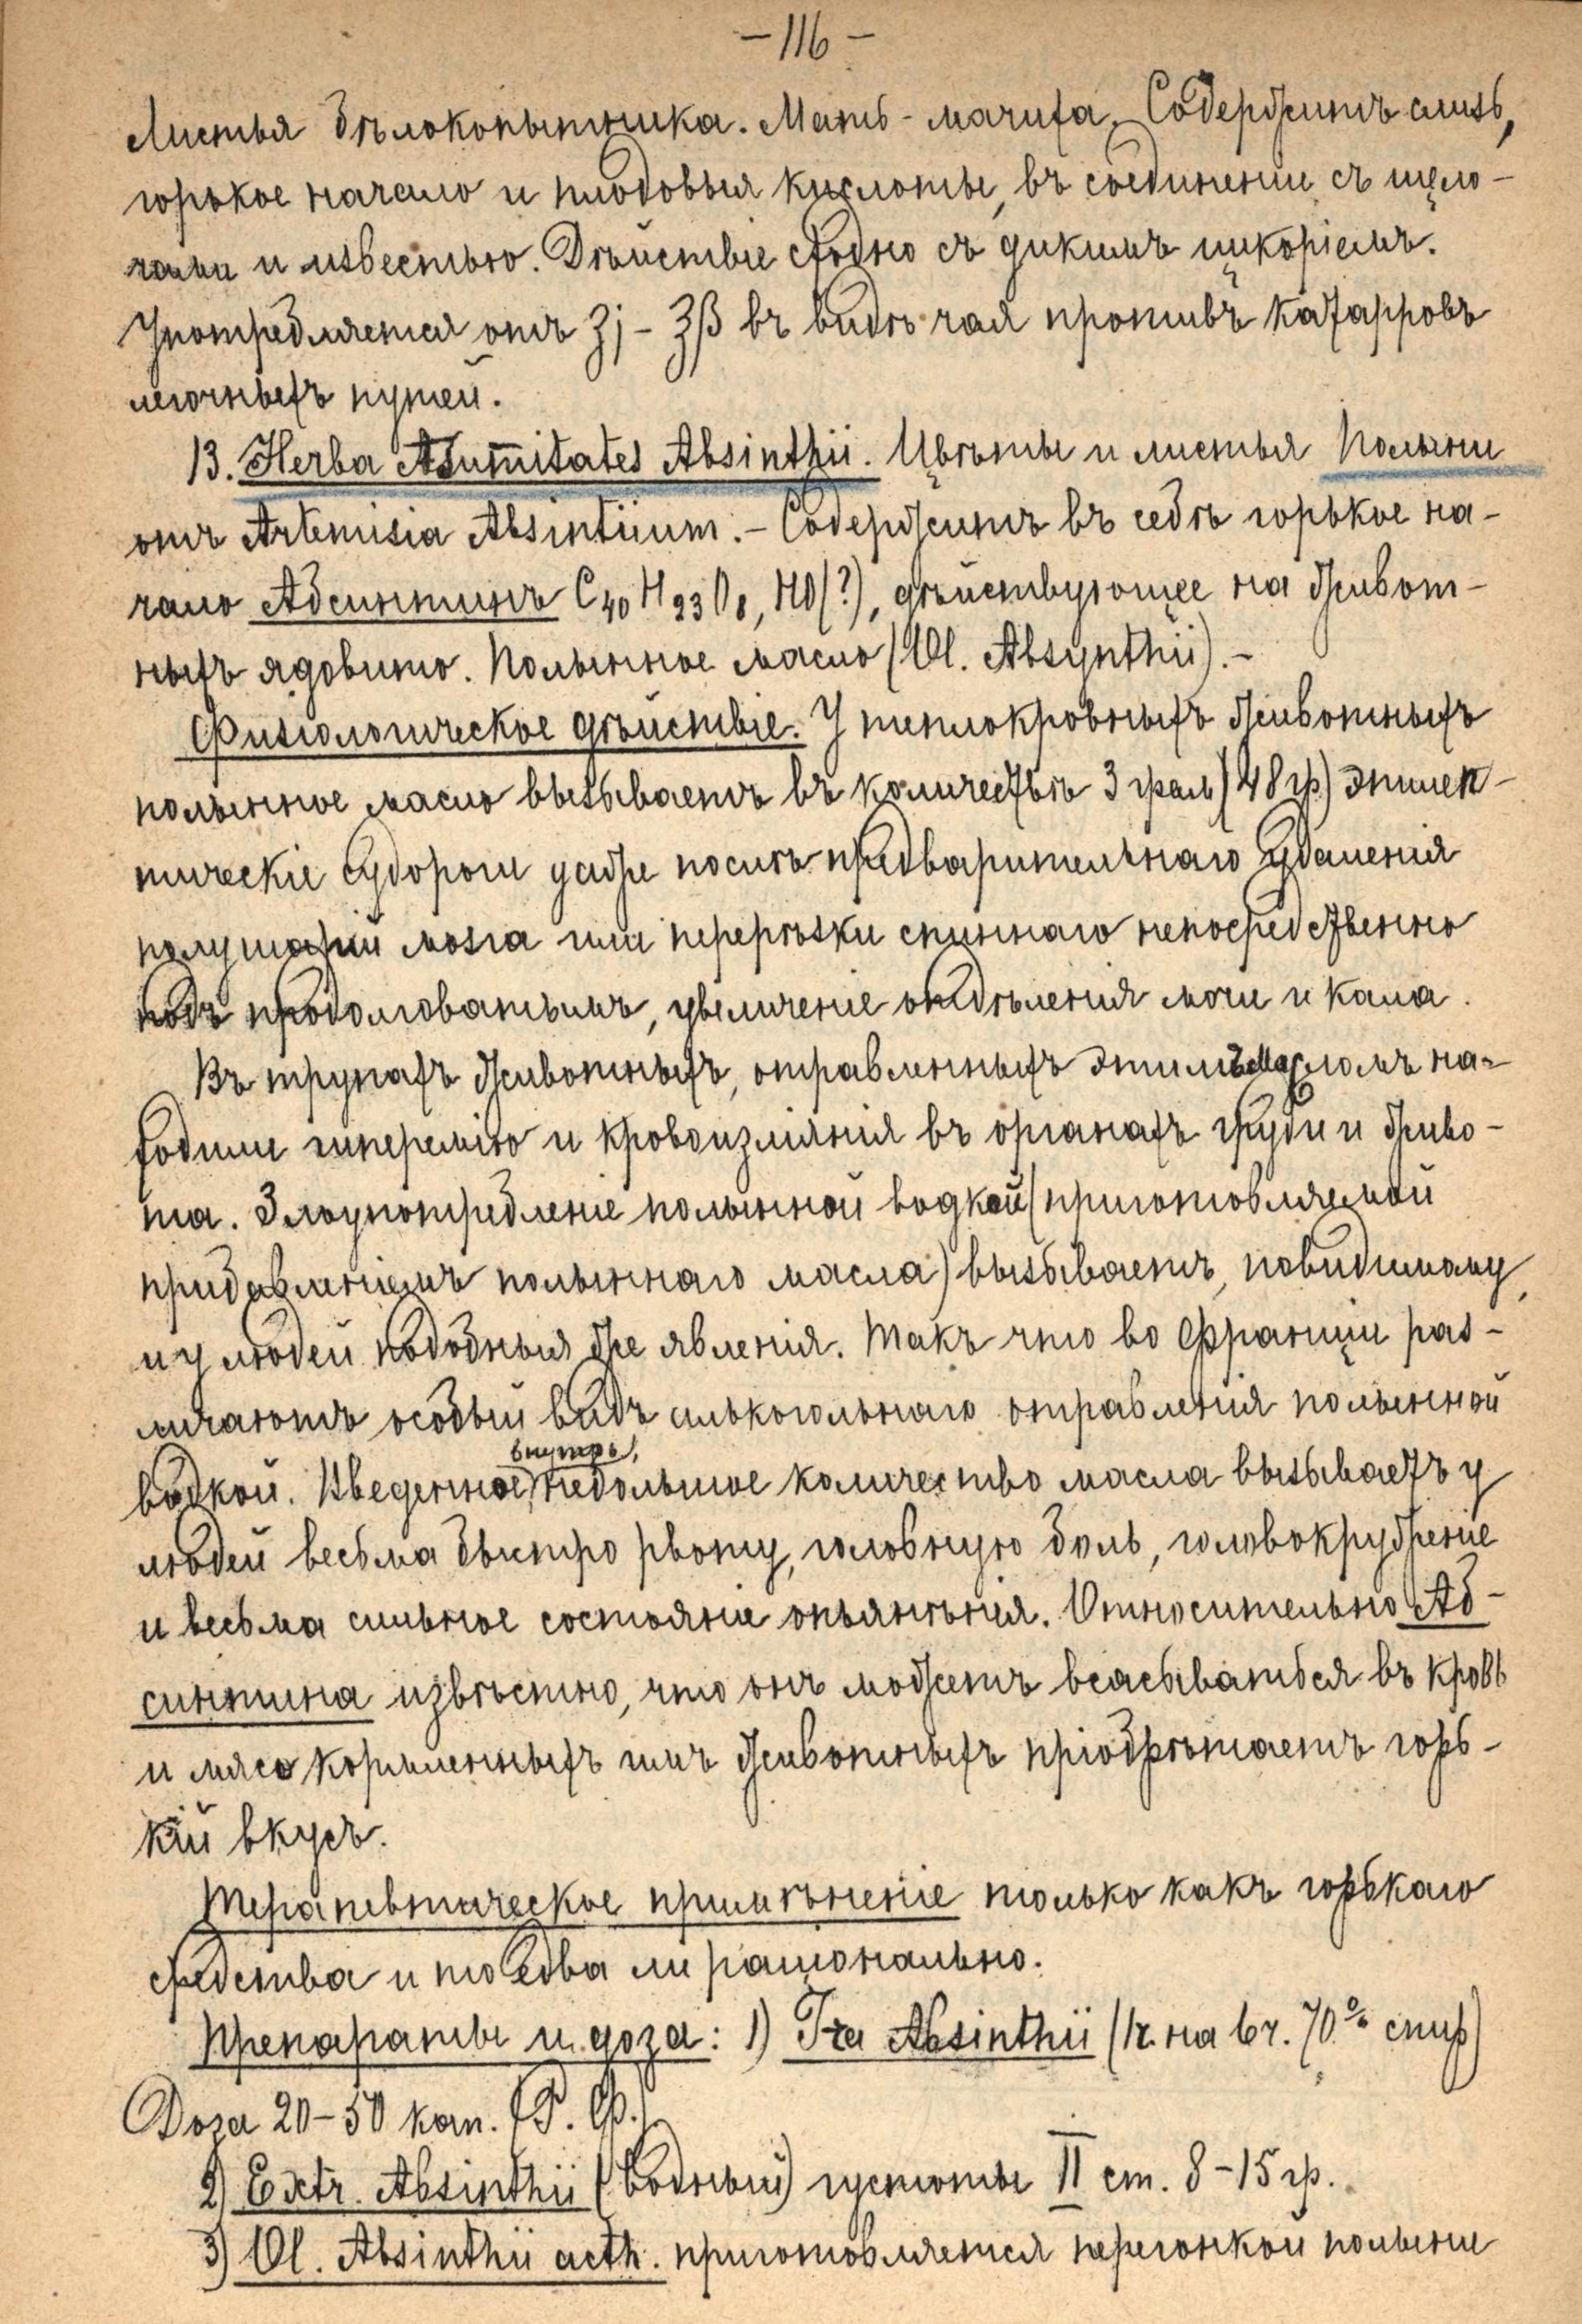 — 116 —
Листья бѣлокопытника. Мать-мачиха. Содержитъ слизь,
горькое начало и плодовыя кислоты, въ соединеніи съ щело-
чами и известью. Дѣйствіе сходно съ дикимъ цикоріемъ.
Употребляется отъ ʒj – ʒβ въ видѣ чая противъ катарровъ
легочныхъ путей.
13. Herba & Summitates Absinthii. Цвѣты и листья Полыни
отъ Artemisia Absintiium. – Содержитъ въ себѣ горькое на-
чало Абсинтинъ C40 H23 O8, HO(?), дѣйствующее на живот-
ныхъ ядовито. Полынное масло (Ol. Absynthii). –
Физіологическое дѣйствіе. У теплокровныхъ животныхъ
полынное масло вызываетъ въ количествѣ 3 грам) 48 гр) эпилеп-
тическіе судороги даже послѣ предварительнаго удаленія
полушарій мозга или перерѣзки спиннаго непосредственно
подъ продолговатымъ, увеличеніе отдѣленія мочи и кала.
Въ трупахъ животныхъ, отравленныхъ этимъ масломъ на-
ходили гиперемію и кровоизліянія въ органахъ груди и живо-
та. Злоупотребленіе полынной водкой (приготовляемой
прибавленіемъ полыннаго масла) вызываетъ, повидимому,
и у людей подобныя же явленія. Такъ что во Франціи раз-
личаютъ особый видъ алькогольнаго отравленія полынной
водкой. Введенное внутрь, небольшое количество масла вызываетъ у
людей весьма быстро рвоту, головную боль, головокруженіе
и весьма сильное состояніе опьянѣнія. Относительно Аб-
синтина извѣстно, что онъ можетъ всасываться въ кровь
и мясо кормленныхъ имъ животныхъ пріобрѣтаетъ горь-
кій вкусъ.
Терапевтическое примѣненіе только какъ горькаго
средства и то едва ли раціонально.
Препараты и доза: 1) T-ra Absinthii (1ч. на 6ч. 70% спир)
Доза 20–50 кап. (Р. Ф.)
2) Extr. Absinthii (водный) густоты II ст. 8–15 гр.
3) Ol. Absinthii aeth. приготовляется перегонкой полыни